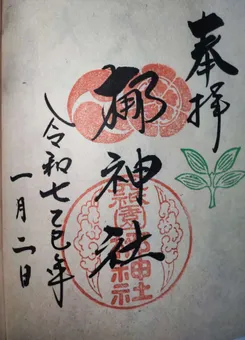 奉拝
梛神社
令和七乙巳年
一月二日
神社